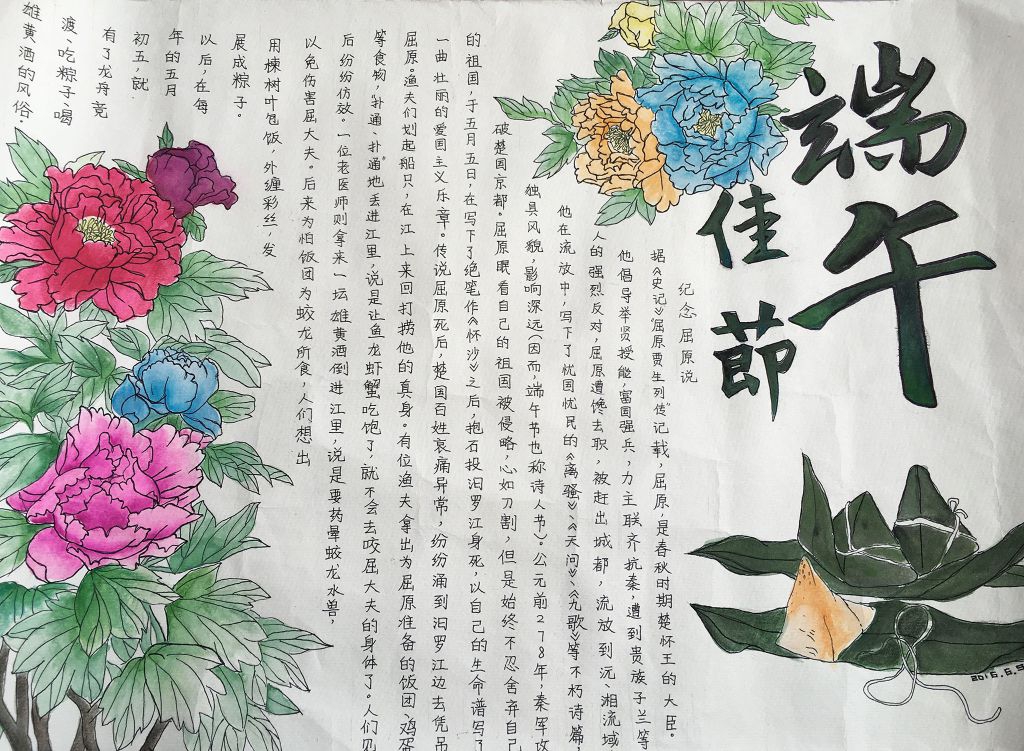 端午
佳節
纪念屈原说
据《史记》"屈原贾生列传"记载，屈原，是春秋时期楚怀王的大臣。
他倡导举贤授能，富国强兵，力主联齐抗秦，遭到贵族子兰等
人的强烈反对，屈原遭馋去职，被赶出城都，流放到沅、湘流域
他在流放中，写下了忧国忧民的《离骚》、《天问》、《九歌》等不朽诗篇，
独具风貌，影响深远(因而，端午节也称诗人节)。公元前278年，秦军攻
破楚国京都。屈原眼看自己的祖国被侵略，心如刀割，但是始终不忍舍弃自己
的祖国，于五月五日，在写下了绝笔作《怀沙》之后，抱石投汨罗江身死，以自己的生命谱写了
一曲壮丽的爱国主义乐章。传说屈原死后，楚国百姓哀痛异常，纷纷涌到汨罗江边去凭吊
屈原。渔夫们划起船只，在江上来回打捞他的真身。有位渔夫拿出为屈原准备的饭团、鸡蛋
等食物，"扑通、扑通"地丢进江里，说是让鱼龙虾蟹吃饱了，就不会去咬屈大夫的身体了。人们见
后纷纷仿效。一位老医师则拿来一坛雄黄酒倒进江里，说是要药晕蛟龙水兽，
以免伤害屈大夫。后来为怕饭团为蛟龙所食，人们想出
用楝树叶包饭，外缠彩丝，发
展成粽子。
以后，在每
年的五月
初五，就
有了龙舟竞
渡、吃粽子、喝
雄黄酒的风俗。
2016.6.5